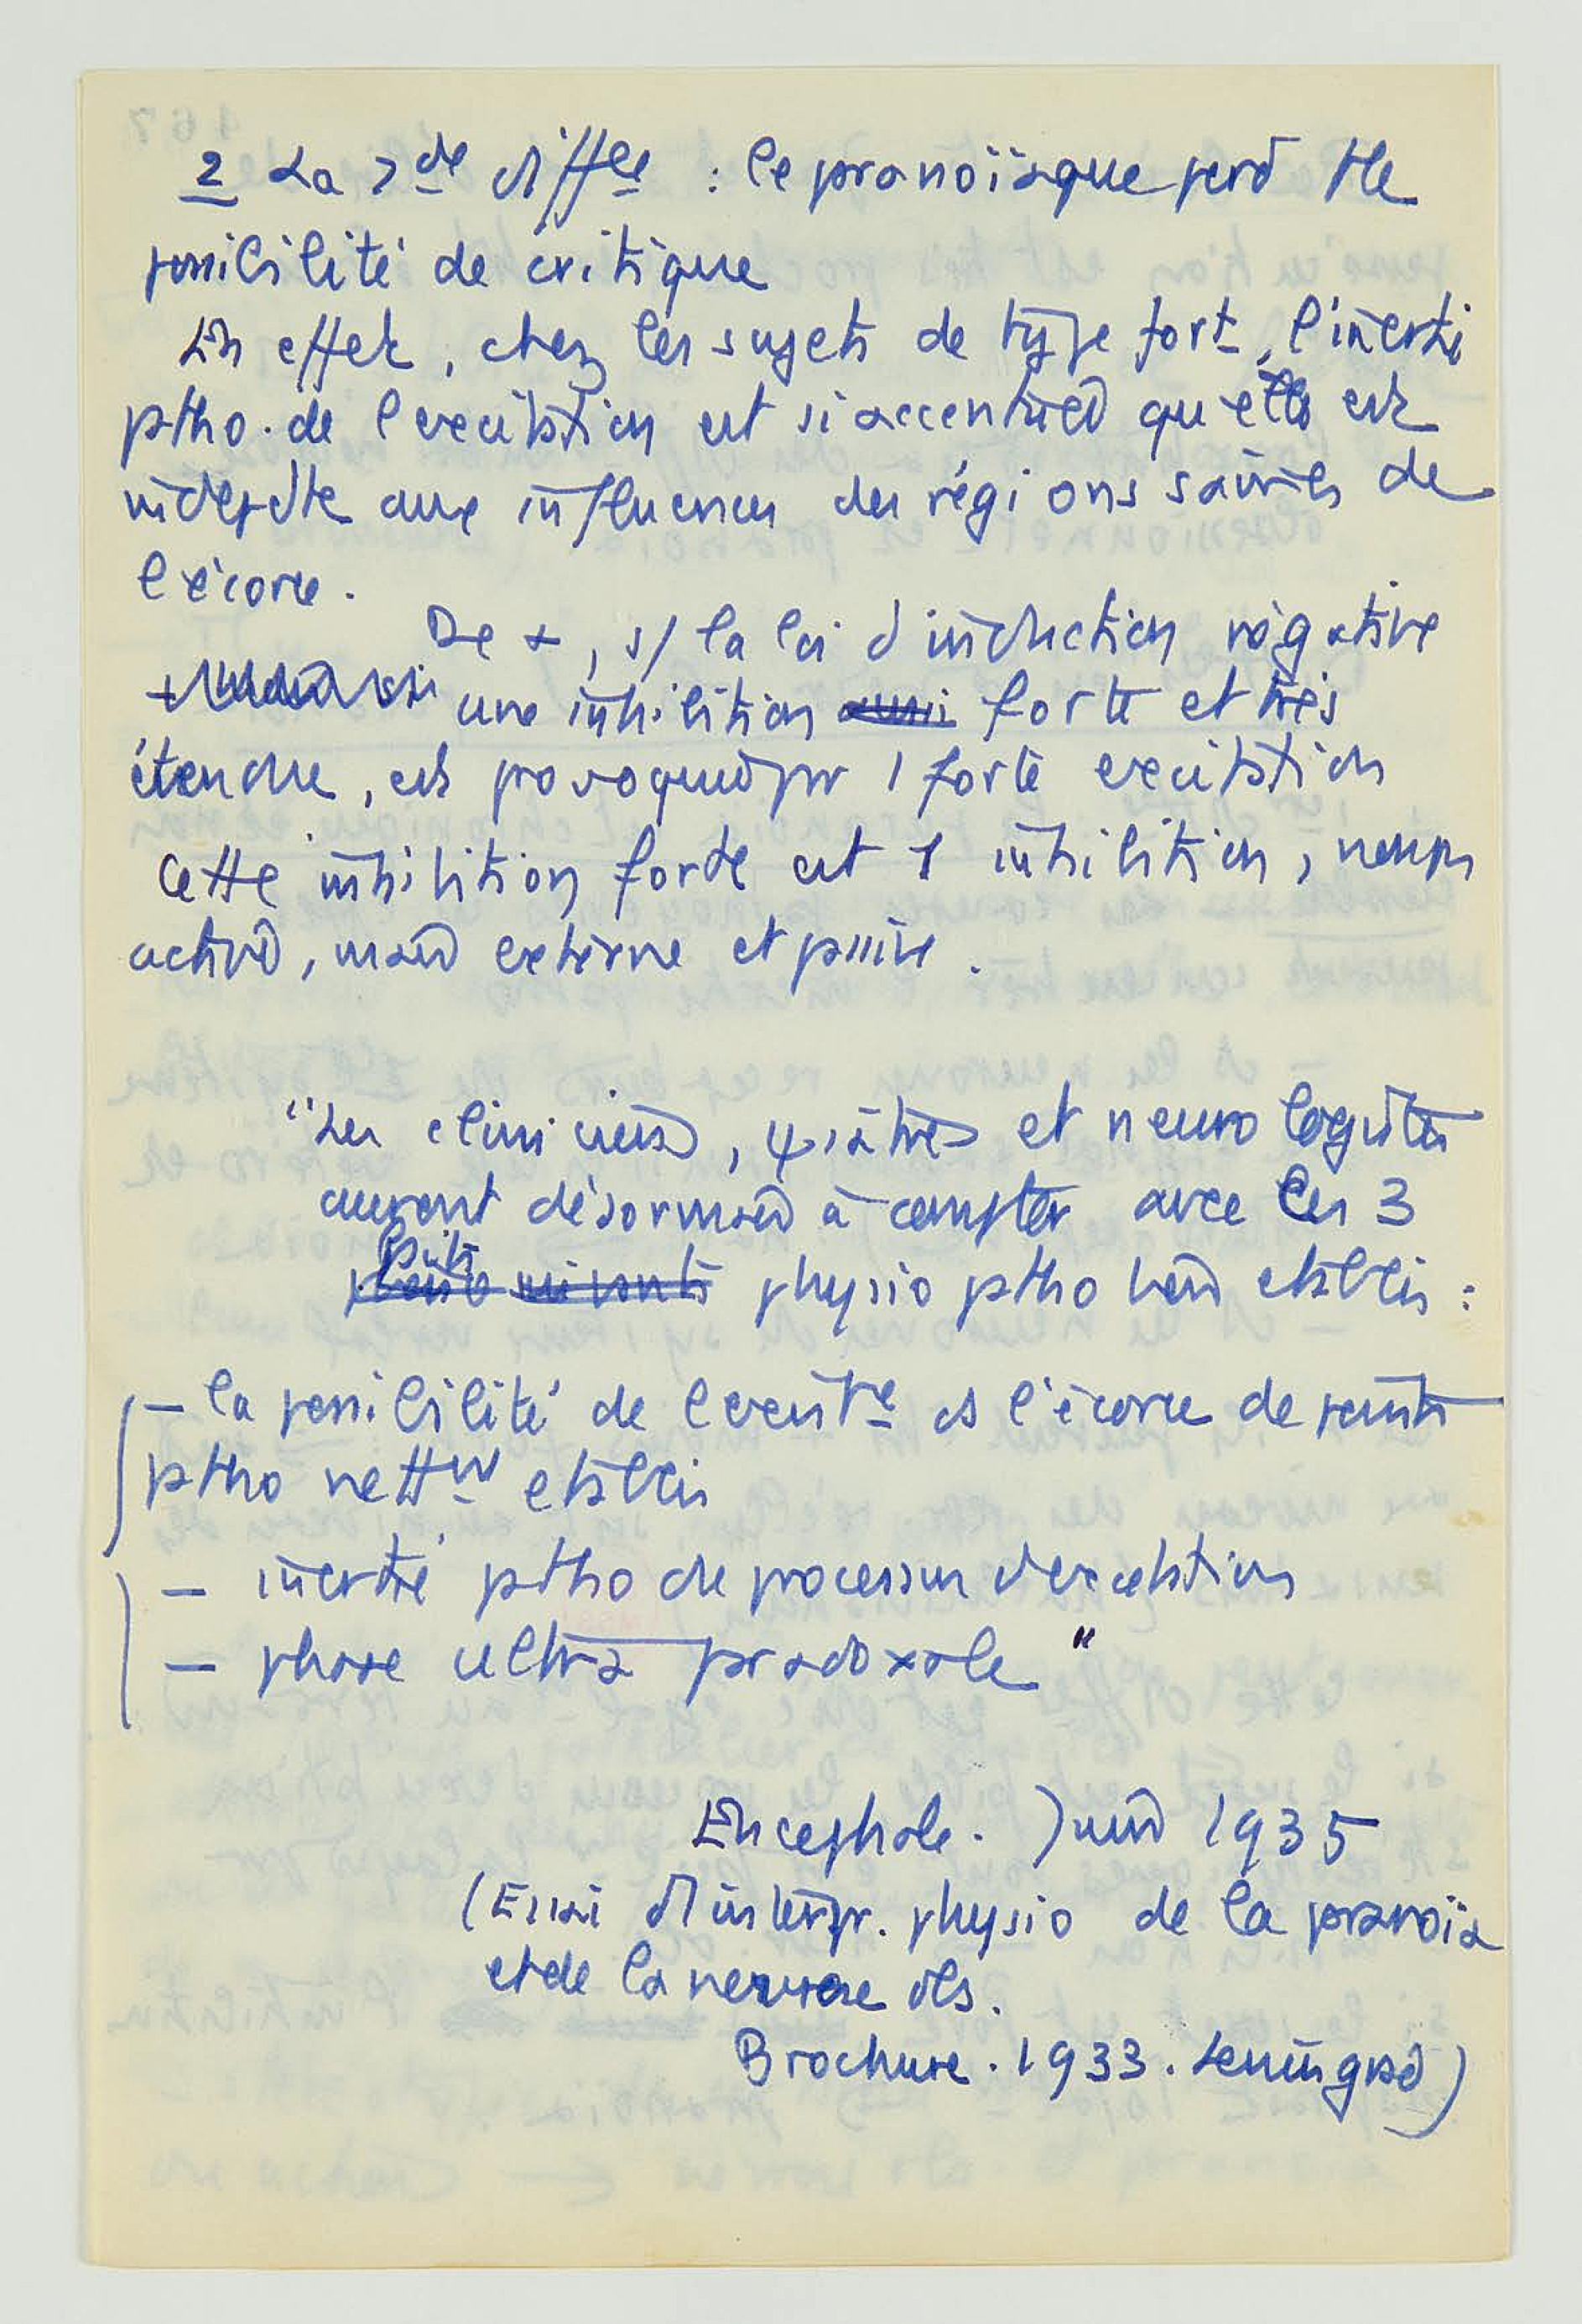 2 La 2de diffce : le pranoïaque perd tte
possibilité de critique
En effet, chez les sujets de type fort, l'inertie
ptho. de l'excitation est si accentuée qu'elle est
indepdte aux influences des régions saines de
l'écorce.
De +, s/ la loi d'induction négative
une inhibition aussi forte et très
étendue, est provoquée pr 1 forte excitation
Cette inhibition forte est 1 inhibition, non ps
active, mais externe et passive.
"Les cliniciens, ψiatres et neurologistes
auront désormais à compter avec les 3
faits
physio ptho bien etablis :
- la possibilité de l'existce ds l'écorce de points
ptho nettmt etablis
- inertie ptho du processus d'excitation
- phase ultra pradoxale "
Encephale. Juin 1935
(Essai d'interpr. physio de la pranoïa
et de la nevrose obs.
Brochure. 1933. Leningrad)